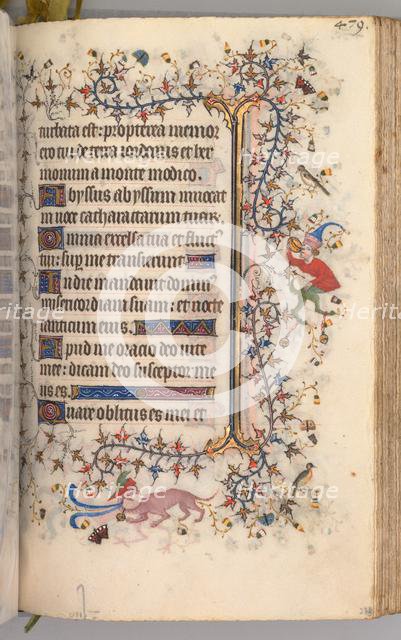 479.
turbata est: propterea memor
ero tui de terra iordanis et her
monium a monte modico.
Abyssus abyssum invocat
in voce catharactarum tuarum.
Omnia excelsa tua et fluct
tui: super me transierunt.
In die mandavit dominus
misericordiam suam: et nocte
canticum eius.
Apud me oracio deo vite
mee: dicam deo susceptor me
us es.
Quare oblitus es mei et
Heritage
Heritage
Heritage
Heritage
Heritage
Heritage